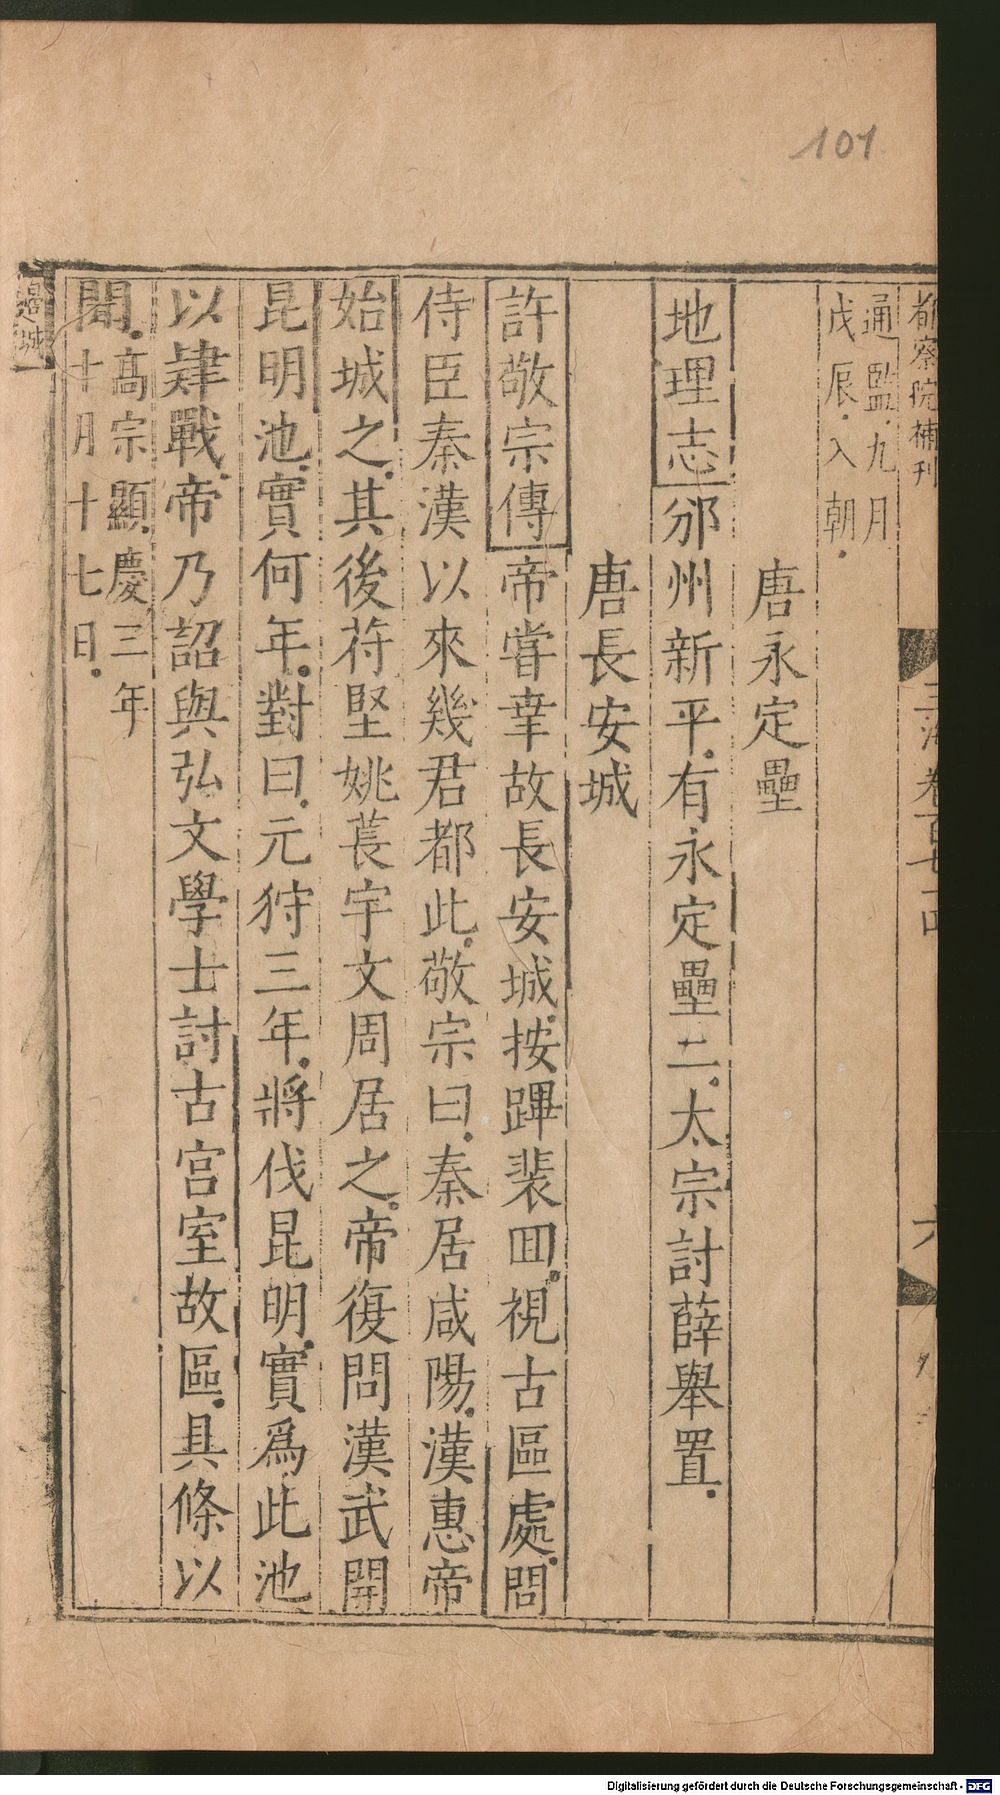 101
都察院補刊
玉海卷百七十四
六
通監九月
戊辰入朝
唐永定壘
地理志邠州新平有永定壘二太宗討薛舉置
唐長安城
許敬宗傳帝嘗幸故長安城按蹕裴回視古區處問
侍臣秦漢以來幾君都此敬宗曰秦居咸陽漢惠帝
始城之其後苻堅姚萇宇文周居之帝復問漢武開
昆明池實何年對曰元狩三年將伐昆明實爲此池
以肄戰帝乃詔與弘文學士討古宮室故區具條以
聞高宗顯慶三年
十月十七日
邊城
Digitalisierung gefördert durch die Deutsche Forschungsgemeinschaft - DFG